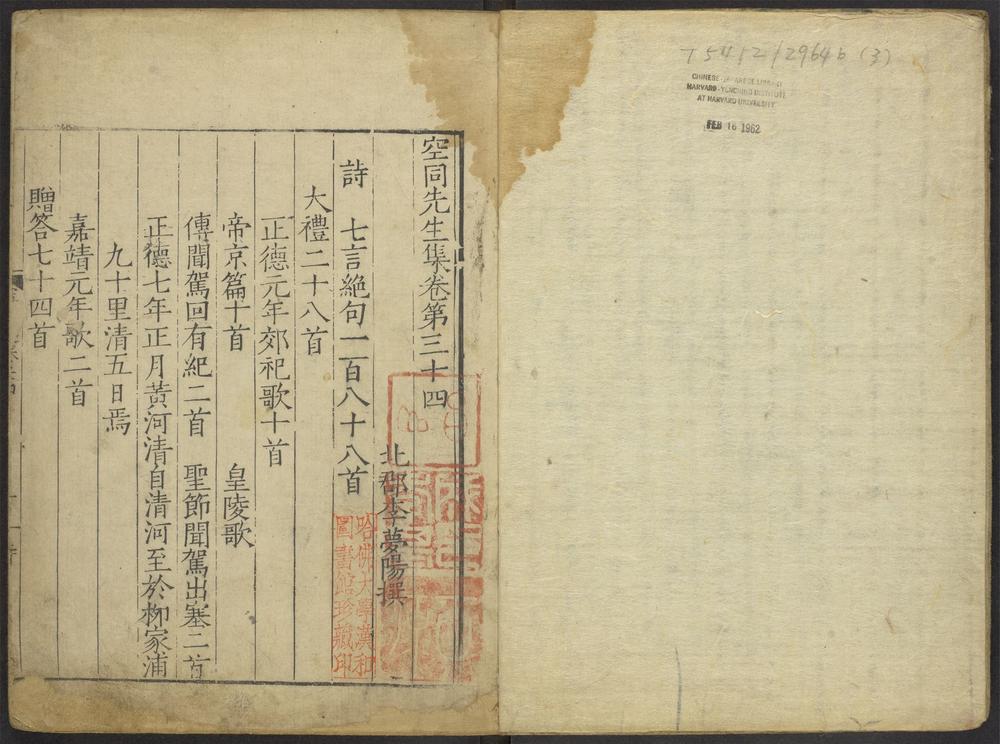 T 5412/2964b (3)
CHINESE-JAPANESE LIBRARY
HARVARD-YENCHING INSTITUTE
AT HARVARD UNIVERSITY
FEB 16 1962
空同先生集卷第三十四
北郡李夢陽撰
詩 七言絶句一百八十八首
大禮二十八首
正德元年郊祀歌十首
帝京篇十首 皇陵歌
傳聞駕回有紀二首 聖節聞駕出塞二首
正德七年正月黃河清自清河至於柳家浦
九十里清五日焉
嘉靖元年歌二首
贈答七十四首
哈佛大學漢和
圖書館珍藏印